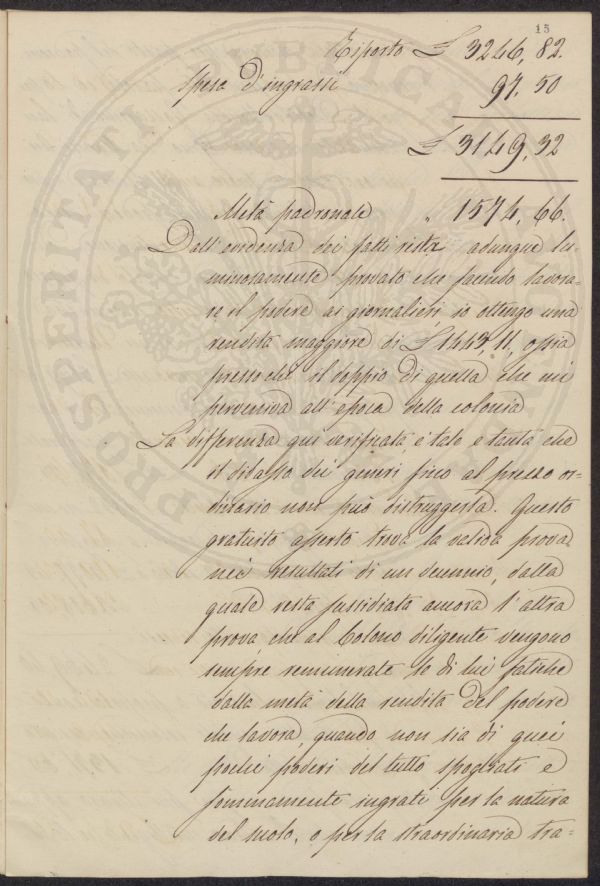 15
Riporto £ 3246,82.
Spesa d'ingrassi 97.50
£ 3149,32
Metà padronale „ 1574,66.
Dall'evidenza dei fatti resta adunque lu-
minosamente provato che facendo lavora-
re il podere ai giornalieri, io ottengo una
rendita maggiore di £ 1447,11, ossia
pressoché il doppio di quella che mi
perveniva all'epoca della colonia
La differenza qui verificata, è tale e tanta che
il ribasso dei generi fino al prezzo or-
dinario non può distruggerla. Questo
gratuito asserto trova la valida prova
nei resultati di un decennio, dalla
quale resta sussidiata ancora l'altra
prova, che al Colono diligente vengono
sempre remunerate le di lui fatiche
dalla metà della rendita del podere
che lavora, quando non sia di quei
pochi poderi del tutto spogliati e
sommamente ingrati per la natura
del suolo, o per la straordinaria tra-
PROSPERITATI PUBLICAE